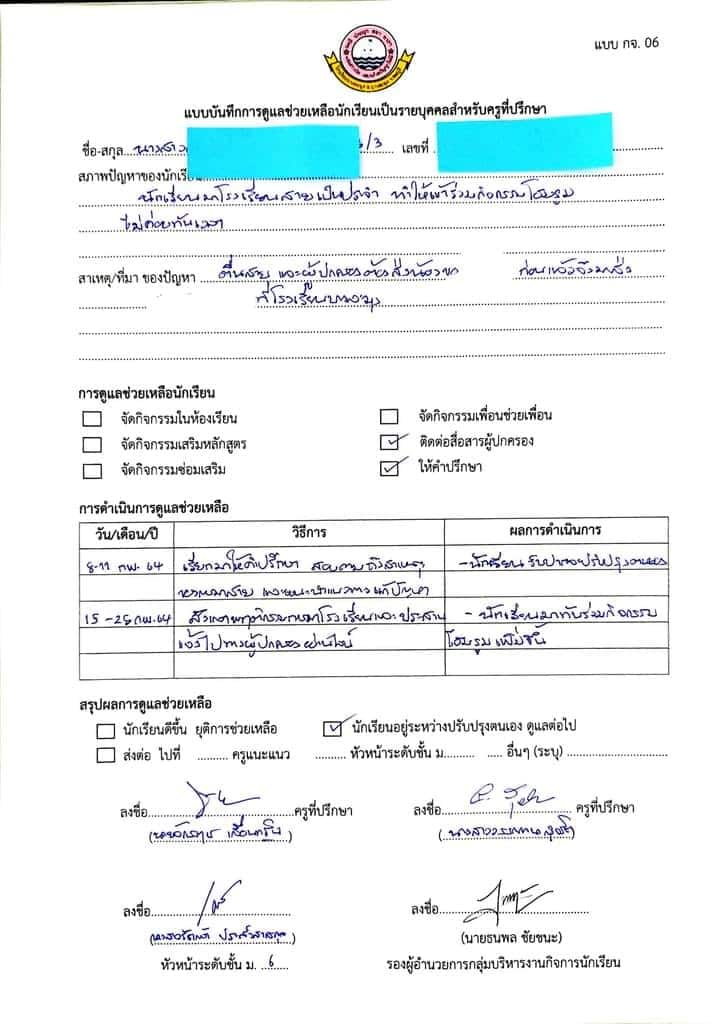 แบบ กจ. 06
แบบบันทึกการดูแลช่วยเหลือนักเรียนเป็นรายบุคคลสำหรับครูที่ปรึกษา
ชื่อ-สกุล นางสาว /3 เลขที่
สภาพปัญหาของนักเรียน
นักเรียนมาโรงเรียนสายเป็นประจำ ทำให้เข้าร่วมกิจกรรมโฮมรูม
ไม่ค่อยทันเวลา
สาเหตุ/ที่มา ของปัญหา ตื่นสาย และผู้ปกครองต้องส่งน้อง ก่อนแล้วจึงมาส่ง
ที่โรงเรียน
การดูแลช่วยเหลือนักเรียน
จัดกิจกรรมในห้องเรียน จัดกิจกรรมเพื่อนช่วยเพื่อน
จัดกิจกรรมเสริมหลักสูตร ติดต่อสื่อสารผู้ปกครอง
จัดกิจกรรมซ่อมเสริม ให้คำปรึกษา
การดำเนินการดูแลช่วยเหลือ
วัน/เดือน/ปี วิธีการ ผลการดำเนินการ
8-11 กพ. 64 เรียกมาให้คำปรึกษา สอบถามถึงสาเหตุ -นักเรียนรับปากจะปรับปรุงตนเอง
ของการมาสาย และแนะนำแนวทางแก้ปัญหา
15-25 กพ.64 สังเกตพฤติกรรมการมาโรงเรียนและประสาน - นักเรียนมาทันร่วมกิจกรรม
แจ้งไปทางผู้ปกครองผ่านไลน์ โฮมรูมเพิ่มขึ้น
สรุปผลการดูแลช่วยเหลือ
นักเรียนดีขึ้น ยุติการช่วยเหลือ นักเรียนอยู่ระหว่างปรับปรุงตนเอง ดูแลต่อไป
ส่งต่อ ไปที่ .......... ครูแนะแนว .......... หัวหน้าระดับชั้น ม.......... ..... อื่นๆ (ระบุ) ..............................
ลงชื่อ ครูที่ปรึกษา ลงชื่อ ครูที่ปรึกษา
ลงชื่อ ลงชื่อ
(นายธนพล ชัยชนะ)
หัวหน้าระดับชั้น ม. 6 รองผู้อำนวยการกลุ่มบริหารงานกิจการนักเรียน